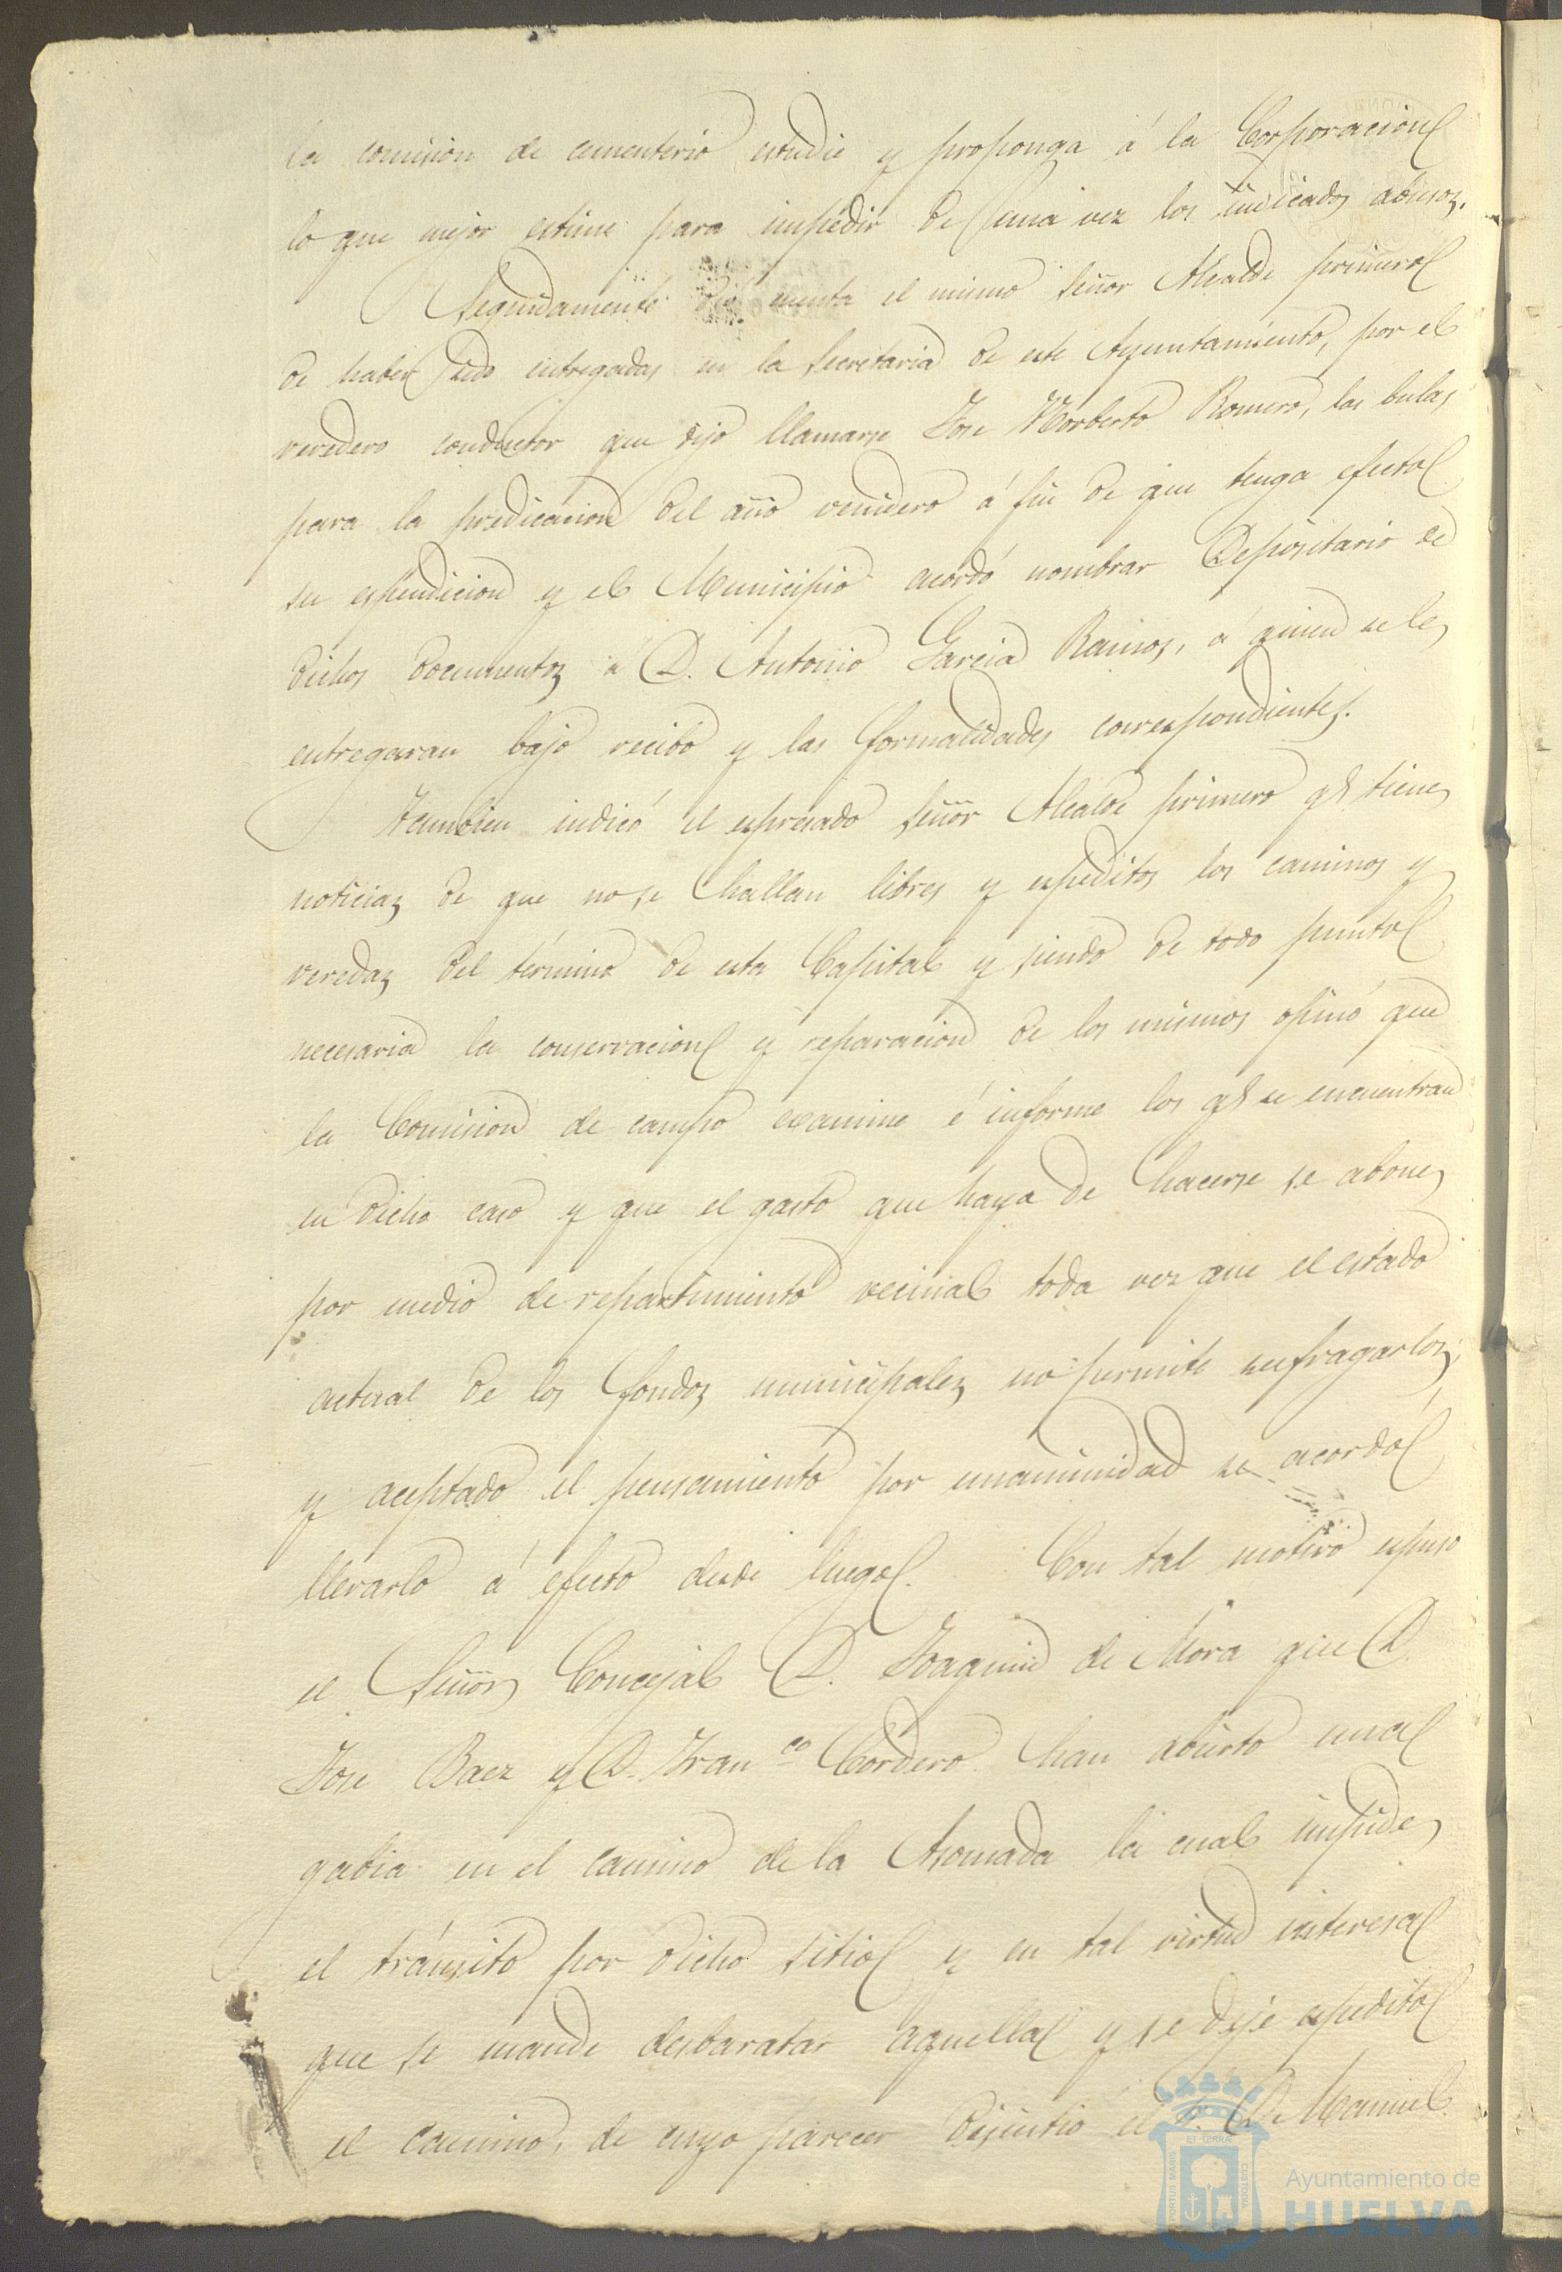 la comision de cementerio estudie y proponga á la Corporacion
lo que mejor estime para impedir de una vez los indicados abusos.
Seguidamente dió cuenta el mismo Señor Alcalde primero
de haber sido entregadas en la Secretaria de este Ayuntamiento, por el
veredero conductor que dijo llamarse Jose Norberto Romero, las bulas
para la predicacion del año venidero á fin de que tenga efecto
su espendicion y el Municipio acordó nombrar Depositario de
dichos documentos á D. Antonio Garcia Ramos, á quien se le
entregaran bajo recibo y las formalidades correspondientes.
Tambien indicó el espresado Señor Alcalde primero qe tiene
noticias de que no se hallan libres y espeditos los caminos y
veredas del término de esta Capital y siendo de todo punto
necesaria la conservacion y reparacion de los mismos opinó que
la Comision de campo examine é informe los qe se encuentran
en dicho caso y que el gasto que haya de hacerse se abone
por medio de repartimiento vecinal toda vez que el estado
actual de los fondos municipales no permite sufragarlos,
y aceptado el pensamiento por unanimidad se acordó
llevarlo á efecto desde luego. Con tal motivo espuso
el Señor Concejal D. Joaquin de Mora que D.
Jose Baez y D. Franco Cordero han abierto una
gabia en el camino de la Asomada la cual impide
el tránsito por dicho sitio y en tal virtud interesa
que se mande desbaratar aquella y se deje espedito
el camino, de cuyo parecer disintió el S. D. Manuel
PORTUS MARIS
ET TERRÆ
CUSTODIA
Ayuntamiento de
HUELVA